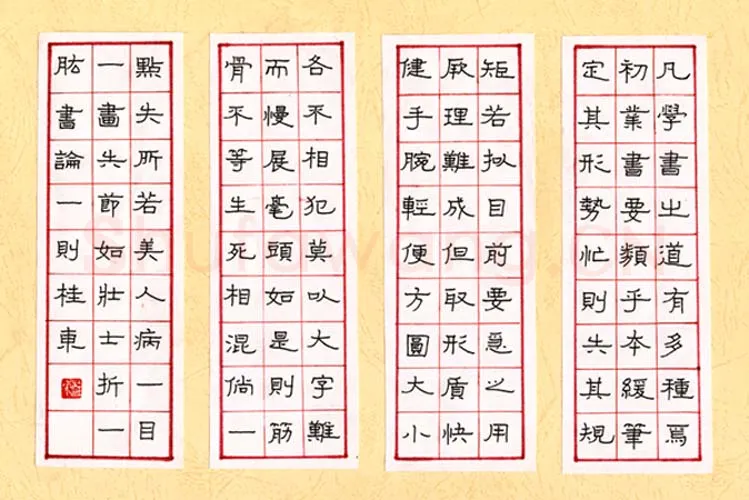 凡學書之道有多種焉
初業書要頻乎本緩筆
定其形勢忙則失其規
矩若擬目前要急之用
厥理難成但取形質快
健手腕輕便方圓大小
各不相犯莫以大字難
而慢展毫頭如是則筋
骨不等生死相混倘一
點失所若美人病一目
一畫失節如壯士折一
肱書論一則桂東